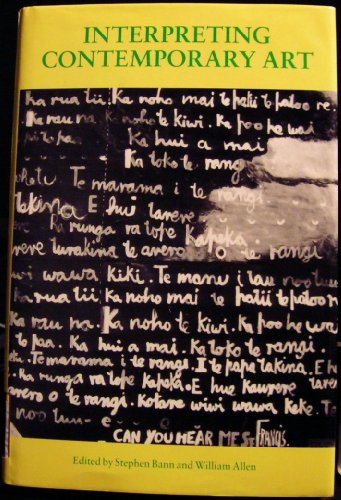 INTERPRETING
CONTEMPORARY ART
Ka rua tii. Ka noho mai te patii te patoo re.
Ka rau na Ka noho te kiwi. Ka poo he wai
Ka hui a mai
Ka toko te rangi
Te marama i te rangi
takina E hui tarere
Ka runga ra tope Kapeka
turakina te arero o te rangi
wiwi wawa kiki. Te manu i tau noo
Ka rua tii Ka noho mai te patii te patoo
Ka rau na. Ka noho te kiwi. Ka poo he wa
te paa. Ka hui a mai. Ka toko te rangi.
Te marama i te rangi. I te pape takina. E
Ka runga ra tope Kapeka. E hue tarere
arero o te rangi. Kotare wiwi wawa keke. Te
noo
CAN YOU HEAR ME ST FRANCIS.
Edited by Stephen Bann and William Allen